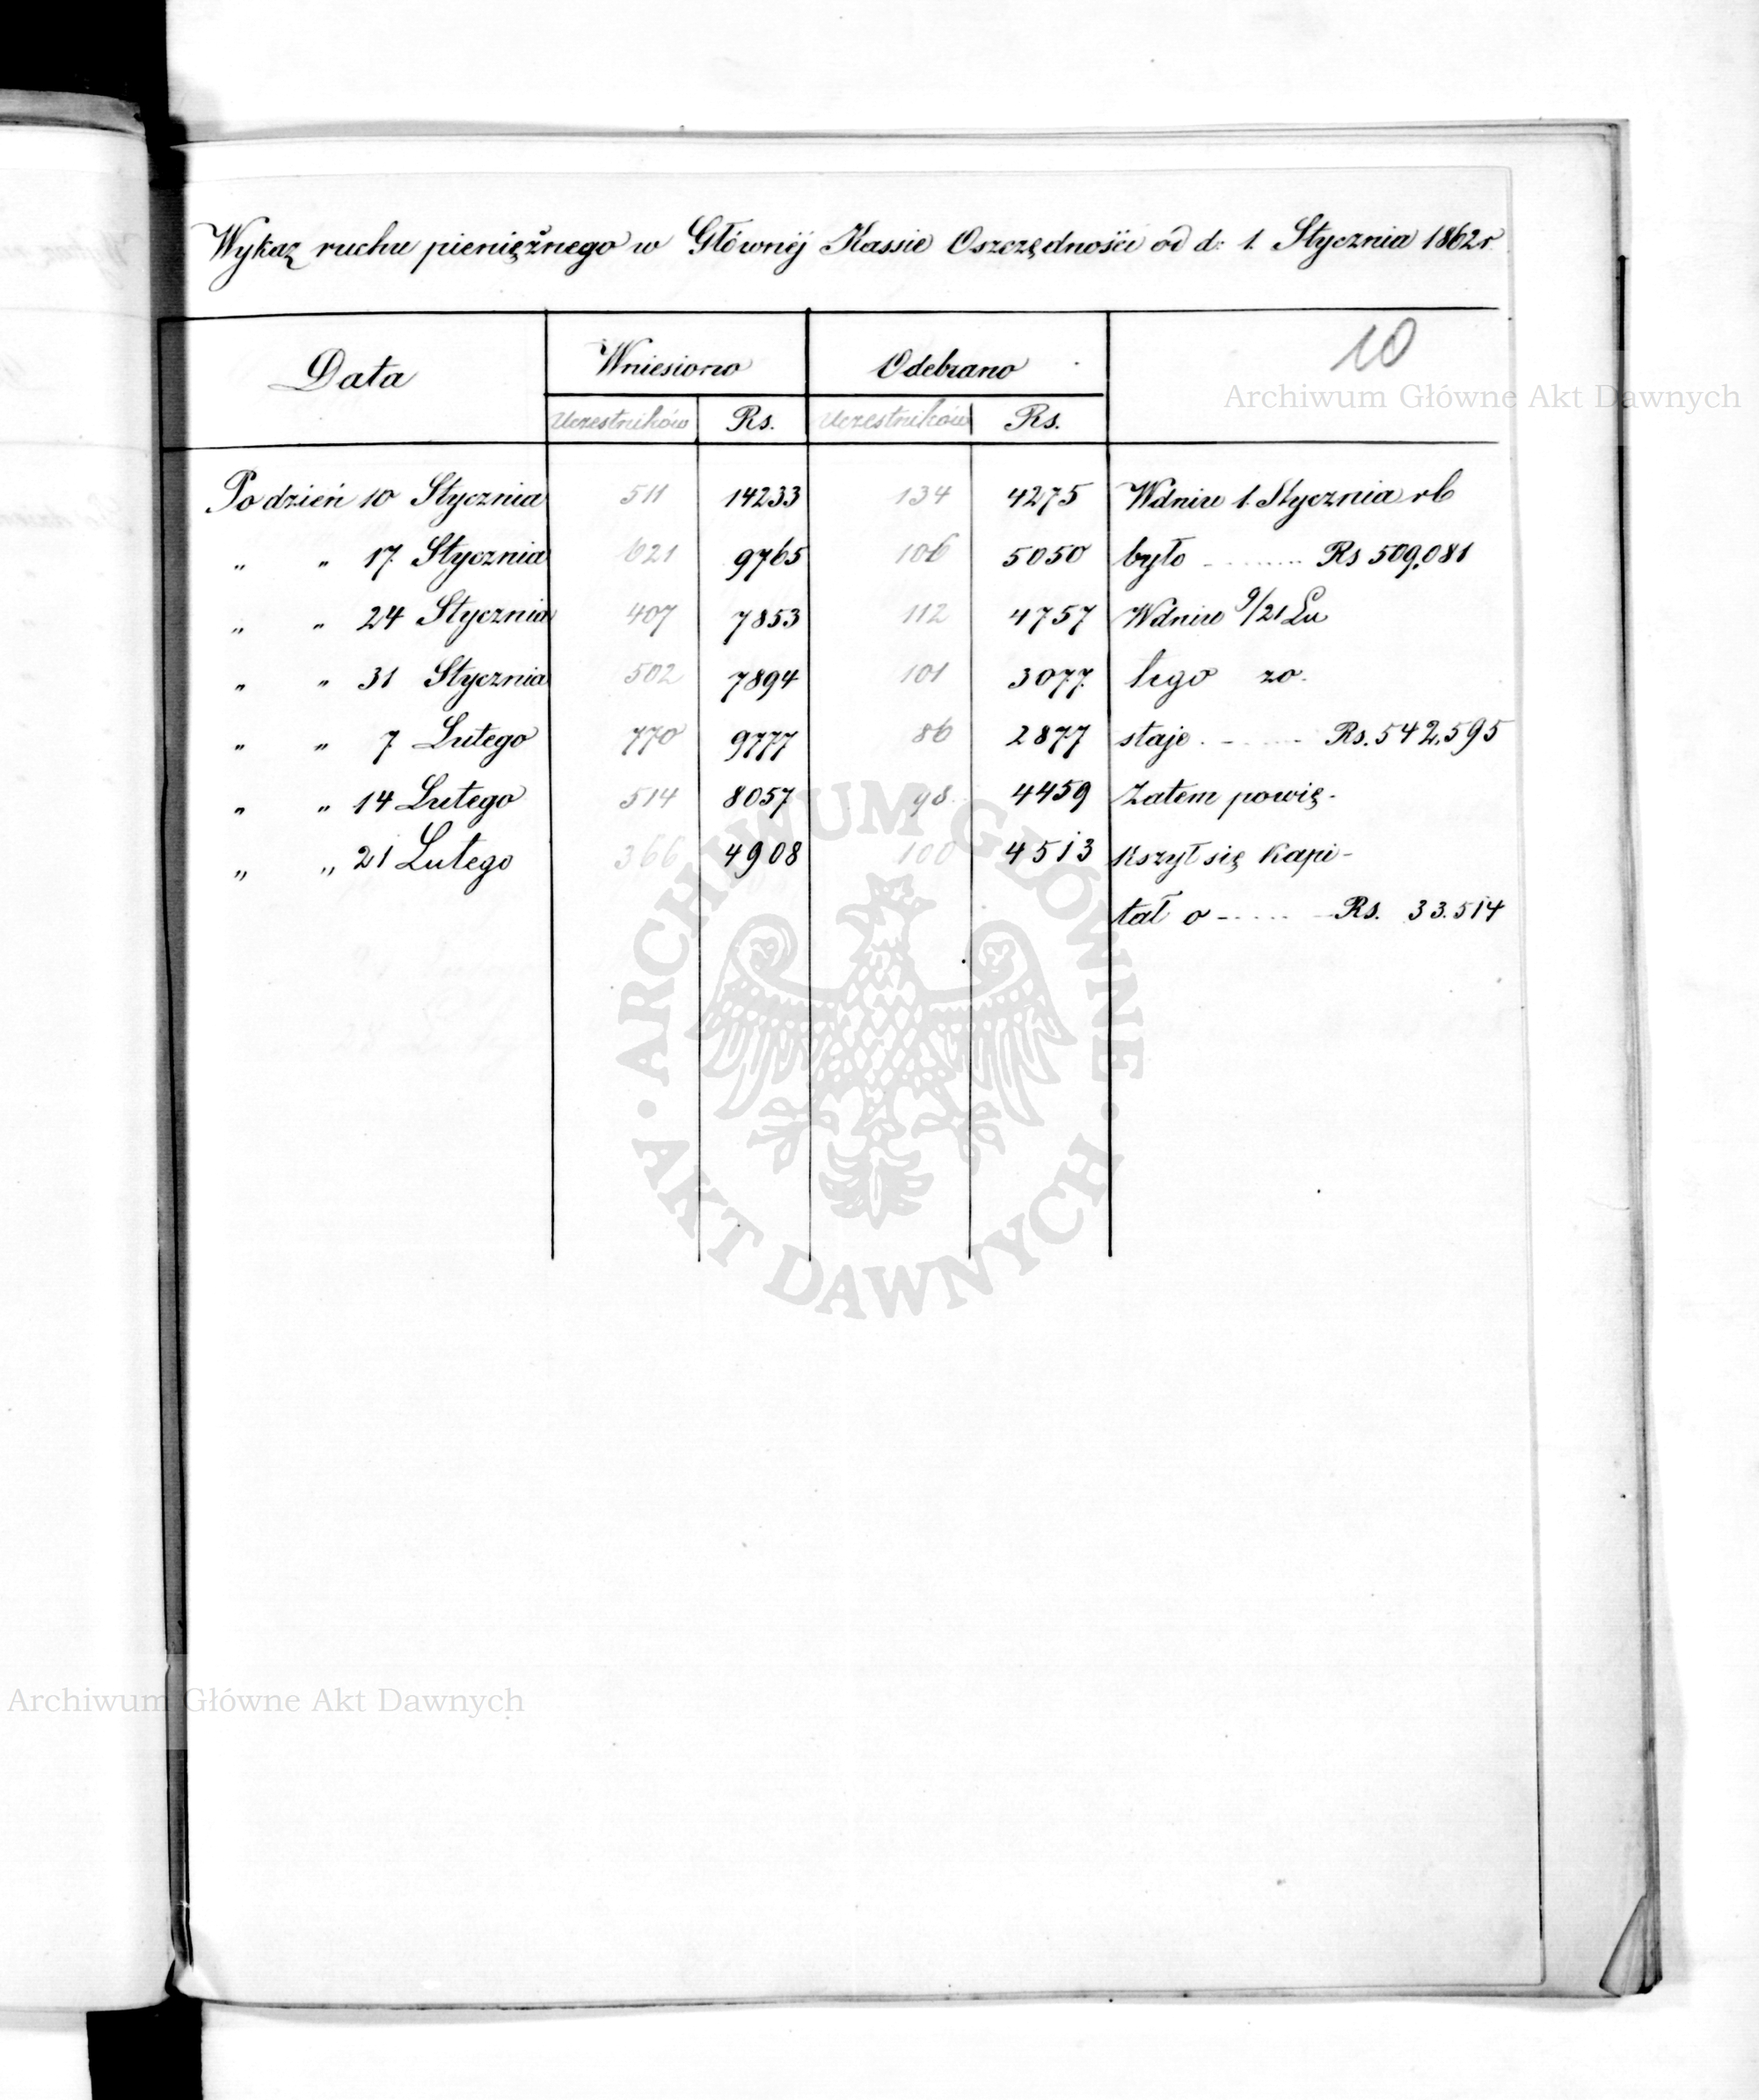 Wykaz ruchu pieniężnego w Głównéj Kassie Oszczędności od d: 1. Stycznia 1862 r.
10
Data Wniesiono Odebrano
Uczestników Rs. Uczestników Rs.
Po dzień 10 Stycznia 511 14233 134 4275 W dniu 1. Stycznia rb
„ „ 17 Stycznia 621 9765 106 5050 było Rs 509,081
„ „ 24 Stycznia 407 7853 112 4757 W dniu 9/21 Lu
„ „ 31 Stycznia 502 7894 101 3077 tego zo-
„ „ 7 Lutego 770 9777 86 2877 staje Rs. 542,595
„ „ 14 Lutego 514 8057 98 4459 Zatem powię-
„ „ 21 Lutego 366 4908 100 4513 kszył się kapi-
tał o Rs. 33.514
Archiwum Główne Akt Dawnych
ARCHIWUM GŁÓWNE AKT DAWNYCH
Archiwum Główne Akt Dawnych